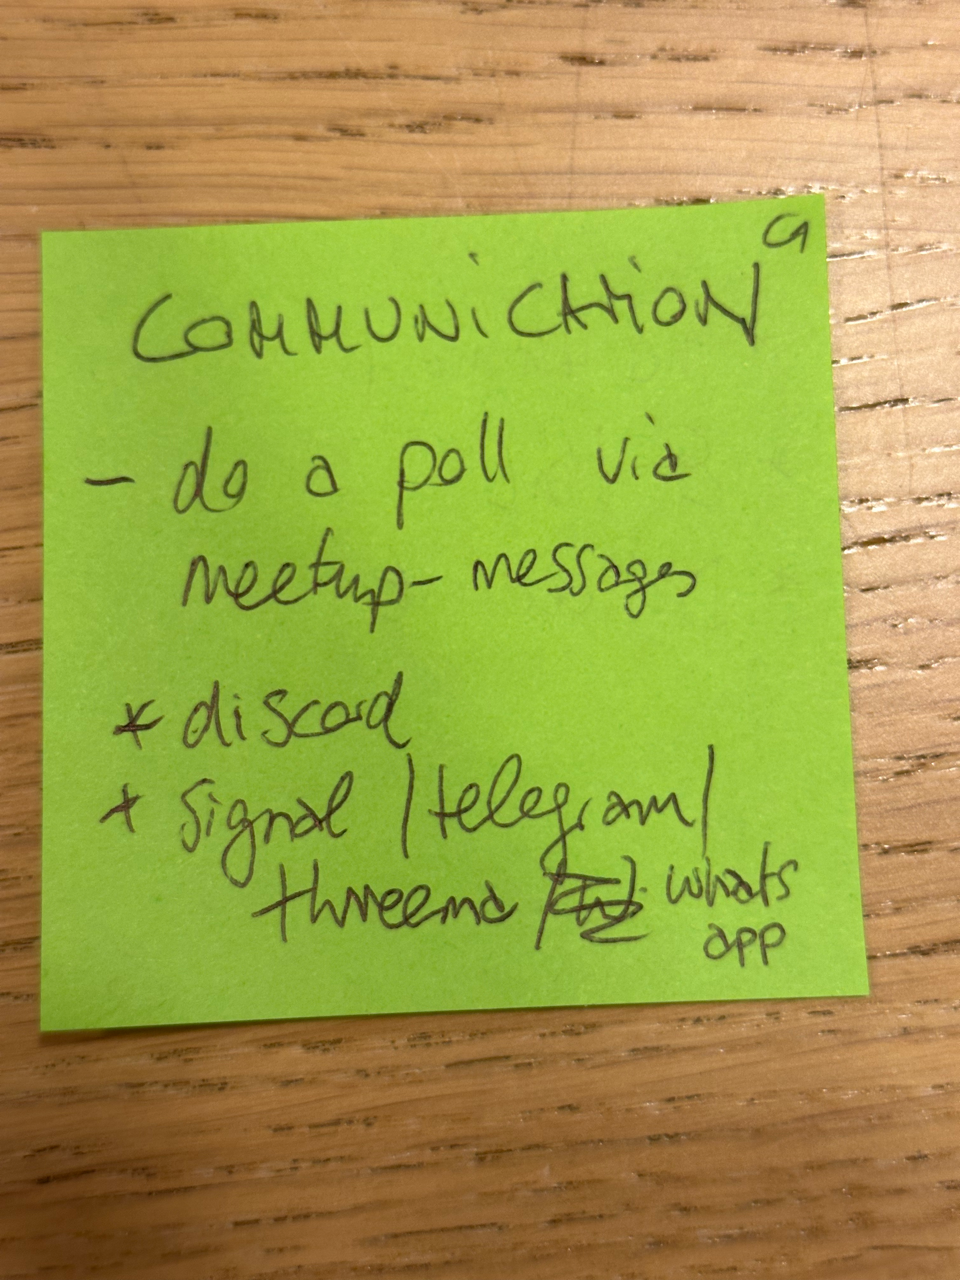 COMMUNiCATiON
- do a poll via
meetup-messages
* discord
* Signal / telegram /
threema / whats
app